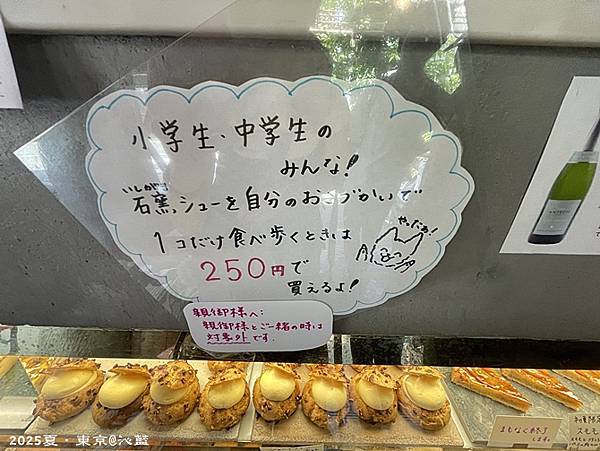 小学生、中学生の
みんな!
いしがま
石窯シューを自分のおこづかいで
1コだけ食べ歩くときは
やったぁ!
250円で
買えるよ!
親御様へ:
親御様とご一緒の時は
対象外です。
まもなく終了
します。
スモモ
2025夏・東京@沁藍